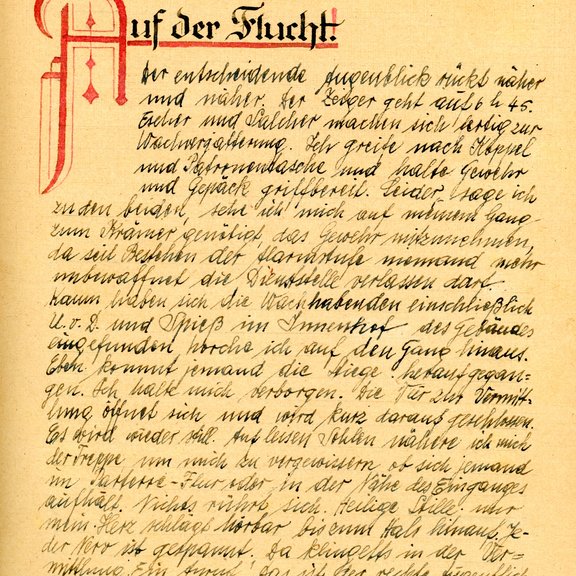 Auf der Flucht!
Der entscheidende Augenblick rückt näher
und näher. Der Zeiger geht auf 6 h 45.
Escher und Salcher machen sich fertig zur
Wachvergatterung. Ich greife nach Koppel
und Patronentasche und halte Gewehr
und Gepäck griffbereit. Leider, sage ich
zu den beiden, sehe ich mich auf meinem Gang
zum Krämer genötigt, das Gewehr mitzunehmen,
da seit Bestehen der Alarmstufe niemand mehr
unbewaffnet die Dienststelle verlassen darf.
Kaum haben sich die Wachhabenden einschließlich
U.v.D. und Spieß im Innenhof des Gebäudes
eingefunden horche ich auf den Gang hinaus.
Eben kommt jemand die Stiege heraufgegan-
gen. Ich halte mich verborgen. Die Tür zur Vermitt-
lung öffnet sich und wird kurz darauf geschlossen.
Es wird wieder still. Auf leisen Sohlen nähere ich mich
der Treppe um mich zu vergewissern ob sich jemand
im Parterre-Flur oder in der Nähe des Einganges
aufhält. Nichts rührt sich. Heilige Stille. Nur
mein Herz schlägt hörbar bis zum Hals hinauf. Je-
der Nerv ist gespannt. Da klingelts in der Ver-
mittlung. Ein Anruf! Das ist der rechte Augenblick